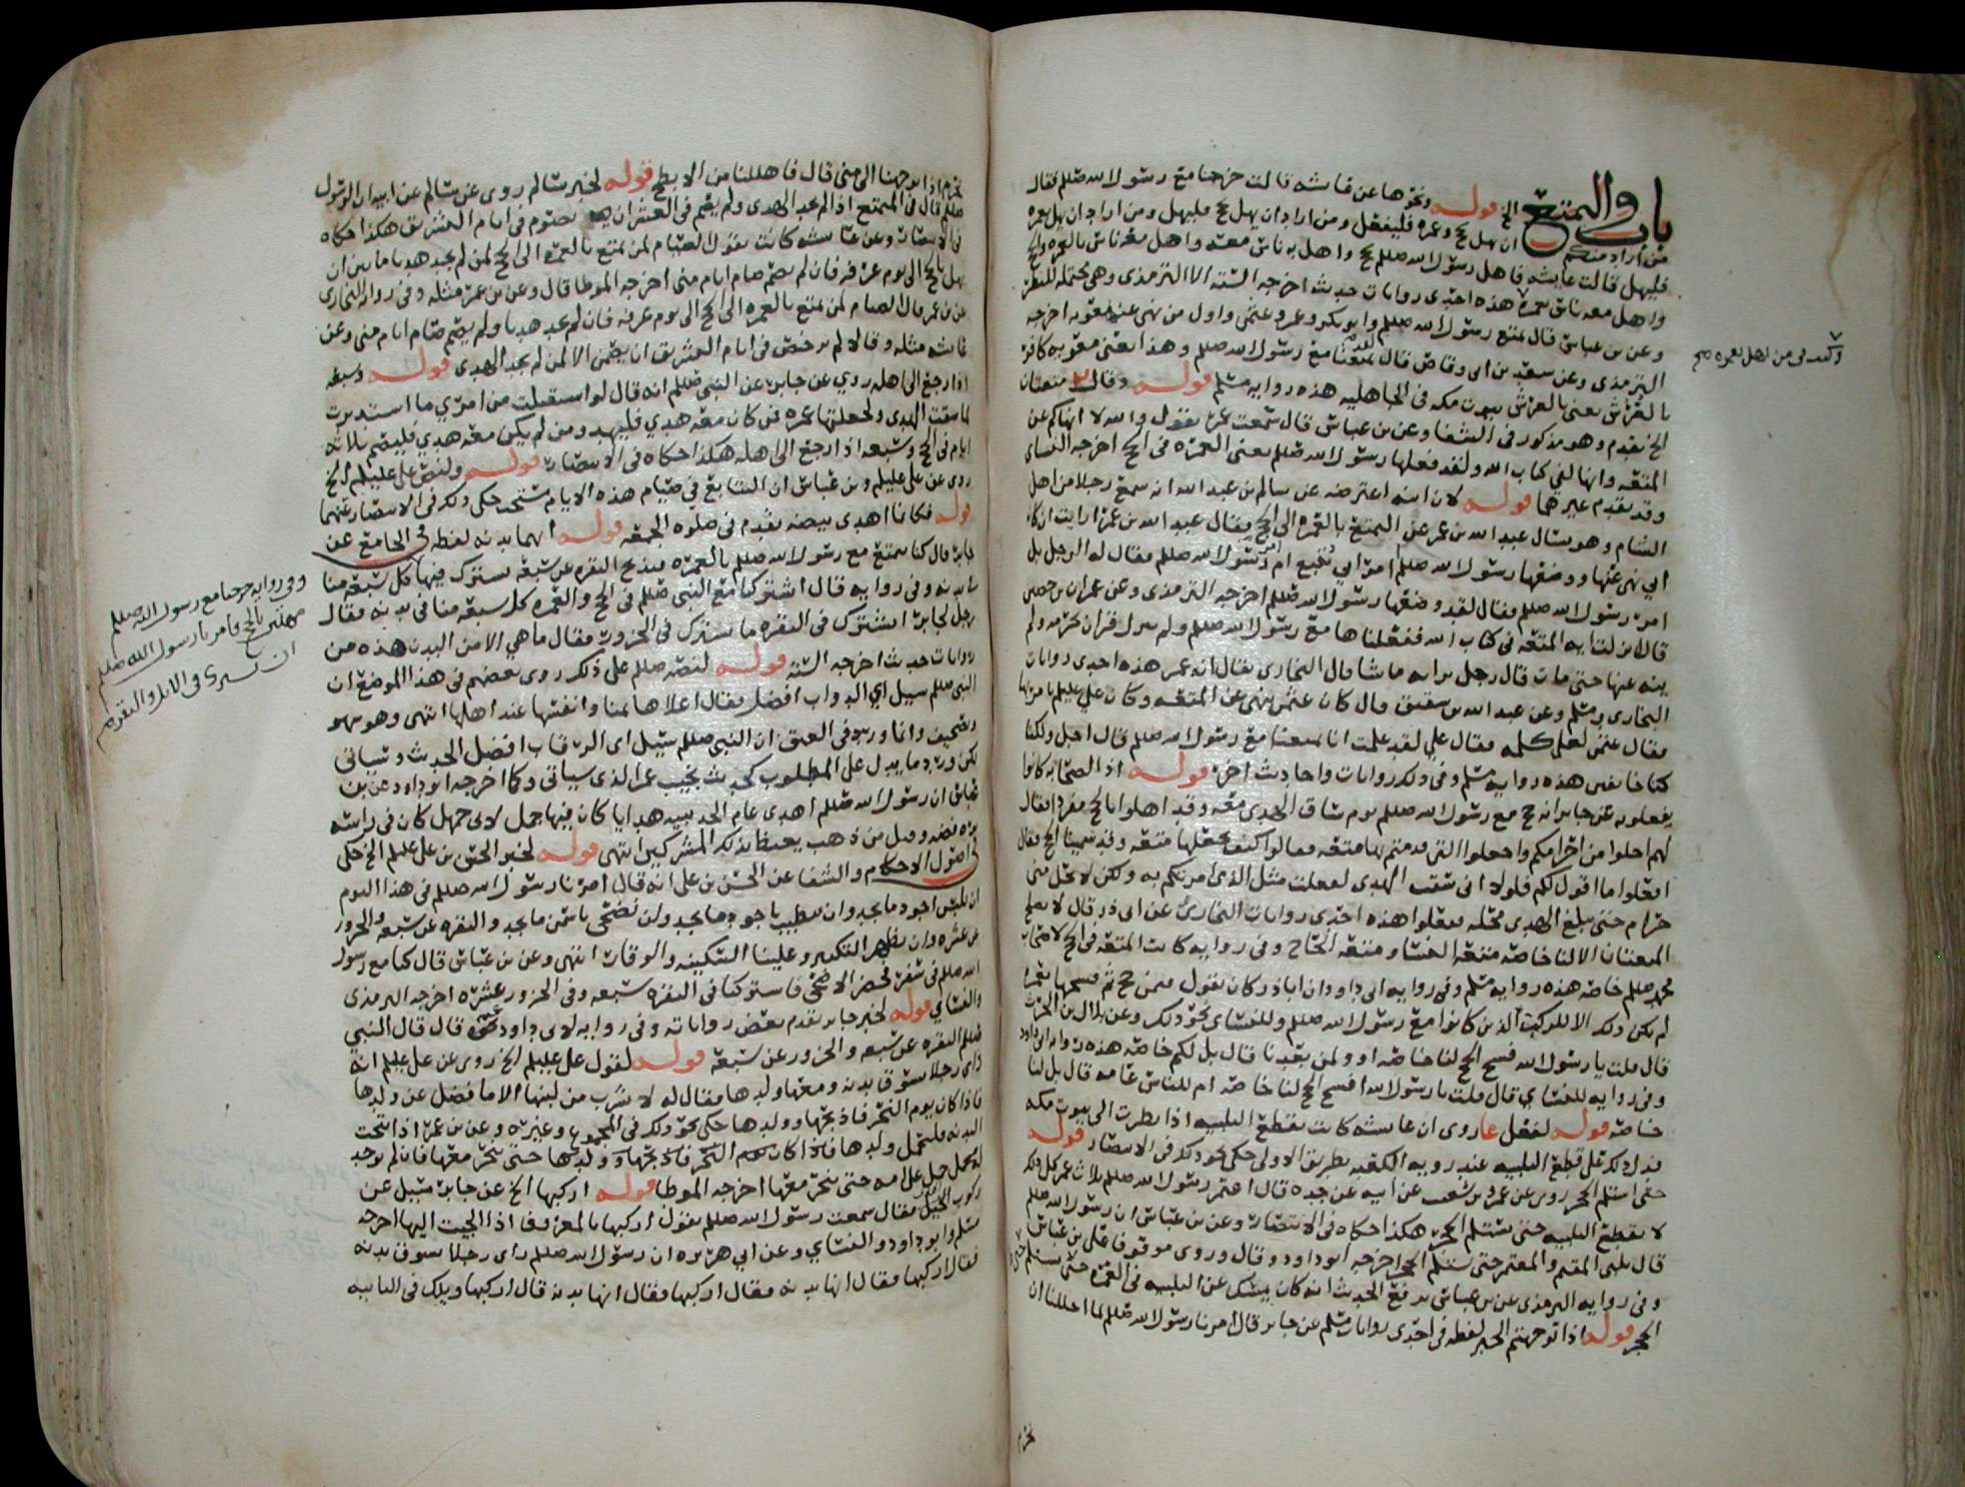 باب والمتمتع الخ قوله ونحوها عن عائشه قالت خرجنا مع رسول الله صللم فقال
من اراد منكم ان يهل بحج وعمره فليفعل ومن اراد ان يهل بحج فليهل ومن اراد ان يهل بعمره
فليهل قالت عايشه فاهل رسول الله صللم بحج واهل به ناس معه واهل معه ناس بالعمره والحج
واهل معه ناس بعمره هذه احدى روايات حديث اخرجه الستة الا الترمذى وهي محتمله للنظر
وكنت فى من اهل بعمره صح
وعن بن عباس قال تمتع رسول الله صللم وابو بكر وعمر وعثمن واول من نهى عنها معويه اخرجه
الترمذى وعن سعد بن ابى وقاص قال تمتعنا مع رسول الله صللم وهذا يعنى معويه كافر
بالعرش يعنى بالعرش بيوت مكه فى الجاهليه هذه روايه مسلم قوله وقال متعتان
الخ تقدم وهو مذكور فى الشفا وعن بن عباس قال سمعت عمر يقول والله لا انهاكم عن
المتعه وانها لفي كتاب الله ولقد فعلها رسول الله صللم يعنى العمره فى الحج اخرجه النساى
وقد تقدم غيرهما قوله لان ابنه اعترضه عن سالم بن عبد الله انه سمع رجلا من اهل
الشام وهو يسال عبد الله بن عمر عن التمتع بالعمره الى الحج فقال عبد الله بن عمر ارايت ان كان
ابي نهى عنها ووضعها رسول الله صللم امر ابي تتبع ام امر رسول الله صللم فقال له الرجل بل
امر رسول الله صللم فقال لقد وضعها رسول الله صللم اخرجه الترمذى وعن عمران بن حصين
قال انزلت ايه المتعه فى كتاب الله ففعلناها مع رسول الله صللم ولم ينزل قران يحرمه ولم
ينه عنها حتى مات قال رجل برايه ما شا قال البخارى يقال انه عمر هذه احدى روايات
البخارى ومسلم وعن عبد الله بن شقيق قال كان عثمن ينهى عن المتعه وكان علي عليلم يامر بها
فقال عثمن لعلي كلمه فقال علي لقد علمت انا تمتعنا مع رسول الله صللم قال اجل ولكنا
كنا خائفين هذه روايه مسلم وفى ذلك روايات واحاديث اخر قوله اذ الصحابه كانوا
يفعلونه عن جابر انه حج مع رسول الله صللم يوم ساق الهدى معه وقد اهلوا بالحج مفردا فقال
لهم احلوا من احرامكم واجعلوا التى قدمتم بها متعه فقالوا كيف نجعلها متعه وقد سمينا الحج فقال
افعلوا ما اقول لكم فلولا انى سقت الهدى لفعلت مثل الذى امرتكم به ولكن لا يحل منى
حرام حتى يبلغ الهدى محله ففعلوا هذه احدى روايات البخارى عن ابى ذر قال لا تصلح
المتعتان الا لنا خاصه متعة النسا ومتعة الحاج وفى روايه كانت المتعه فى الحج لاصحاب
محمد صللم خاصه هذه روايه مسلم وفى روايه ابى داود ان ابا ذر كان يقول فيمن حج ثم فسحها بعمره
لم يكن ذلك الا للركب الذين كانوا مع رسول الله صللم وللنساى نحو ذلك وعن بلال بن الحرث
قال قلت يا رسول الله فسح الحج لنا خاصه او ولمن بعدنا قال بل لكم خاصه هذه روايه ابى داود
وفى روايه للنساي قال قلت يا رسول الله افسح الحج لنا خاصه ام للناس عامه قال بل لنا
خاصه قوله لفعل عا روى ان عايشه كانت تقطع التلبيه اذا نظرت الى بيوت مكه
فدل ذلك على قطع التلبيه عند رويه الكعبه بطريق الاولى حكى نحو ذلك فى الانتصار قوله
حتى استلم الحجر روى عن عمرو بن شعيب عن ابيه عن جده قال اعتمر رسول الله صللم ثلاث عمر كل ذلك
لا يقطع التلبيه حتى يستلم الحجر هكذا حكاه فى الانتصار وعن بن عباس ان رسول الله صللم
قال يلبى المقيم والمعتمر حتى يستلم الحجر اخرجه ابو داود وقال وروى موقوفا على بن عباس
وفى روايه الترمذى عن بن عباس يرفع الحديث انه كان يمسك عن التلبيه فى العمره حتى يستلم
الحجر قوله اذا توجهتم الخبر لفظه فى احدى روايات مسلم عن جابر قال امرنا رسول الله صللم لما احللنا ان
نحرم
نحرم اذا توجهنا الى منى قال فاهللنا من الابطح قوله لخبر سالم روى عن سالم عن ابيه ان الرسول
صللم قال فى المتمتع اذا لم يجد الهدى ولم يصم فى العشر ان يصوم فى ايام التشريق هكذا حكاه
فى الانتصار وعن عايشه كانت تقول الصيام لمن تمتع بالعمره الى الحج لمن لم يجد هديا ما بين ان
يهل بالحج الى يوم عرفه فان لم يصم صام ايام منى اخرجه الموطا قال وعن بن عمر مثله وفى روايه البخارى
عن بن عمر قال الصيام لمن تمتع بالعمره الى الحج الى يوم عرفه فان لم يجد هديا ولم يصم صام ايام منى وعن
عائشه مثله وقالا لم يرخص فى ايام التشريق ان يصمن الا لمن لم يجد الهدى قوله وسبعه
اذا رجع الى اهله روي عن جابر عن النبى صللم انه قال لو استقبلت من امرى ما استدبرت
لما سقت الهدى ولجعلتها عمره فمن كان معه هدي فليهد ومن لم يكن معه هدي فليصم ثلاثه
ايام فى الحج وسبعه اذا رجع الى اهله هكذا حكاه فى الانتصار قوله ولنص علي عليلم الخ
روى عن علي عليلم وبن عباس ان التتابع فى صيام هذه الايام مستحب حكى ذلك فى الانتصار عنهما
قوله فكانما اهدى بيضه تقدم فى صلوه الجمعه قوله انهما بدنه لفظه فى الجامع عن
جابر قال كنا نتمتع مع رسول الله صللم بالعمره فنذبح البقره عن سبعه نشترك فيها كل سبعه منا
فى بدنه وفى روايه قال اشتركنا مع النبى صللم فى الحج والعمره كل سبعه منا فى بدنه فقال
وفى روايه خرجنا مع رسول الله صللم
مهلين بالحج فامرنا رسول الله صللم
ان نشترى فى الابل والبقر صح
رجل لجابر ايشترك فى البقره ما يشترك فى الجزور فقال ما هي الا من البدن هذه من
روايات حديث اخرجه الستة قوله لنصه صللم على ذلك روى بعضهم فى هذا الموضع ان
النبى صللم سيل اي الدواب افضل فقال اعلاها ثمنا وانفسها عند اهلها انتهى وهو سهو
وتصحيف وانما ورد فى العتق ان النبى صللم سيل اى الرقاب افضل الحديث وسياتى
لكن ورد ما يدل على المطلوب كحديث نجيب عمر الذى سياتى وكما اخرجه ابو داود عن بن
عباس ان رسول الله صللم اهدى عام الحديبيه هدايا كان فيها جمل لابى جهل كان فى راسه
بره فضه وقيل من ذهب يغيظ بذلك المشركين انتهى قوله لخبر الحسن بن علي عليلم الخ حكى
فى اصول الاحكام والشفا عن الحسن بن علي انه قال امرنا رسول الله صللم فى هذا اليوم
ان نلبس اجود ما نجد وان نتطيب باجود ما نجد ولن نضحى باسمن ما نجد والبقره عن سبعه والجزور
عن عشره وان نظهر التكبير وعلينا السكينه والوقار انتهى وعن بن عباس قال كنا مع رسول
الله صللم فى سفر فحضر الاضحى فاشتركنا فى البقره سبعه وفى الجزور عشره اخرجه الترمذى
والنساي قوله لخبر جابر تقدم بعض رواياته وفى روايه لابى داود عنه قال قال النبي
صللم البقره عن سبعه والجزور عن سبعه قوله لقول علي عليلم الخ روى عن علي عليلم انه
راى رجلا يسوق بدنه ومعها ولدها فقال له لا تشرب من لبنها الا ما فضل عن ولدها
فاذا كان يوم النحر فاذبحها وولدها حكى نحو ذلك فى المجموع وغيره وعن بن عمر اذا نتجت
البدنه فليحمل ولدها حتى ينحر معها فان لم يوجد
له محمل حمل على امه حتى ينحر معها اخرجه الموطا قوله اركبها الخ عن جابر سيل عن
ركوب الهدي فقال سمعت رسول الله صللم يقول اركبها بالمعروف اذا الجيت اليها اخرجه
مسلم وابو داود والنساي وعن ابي هريره ان رسول الله صللم راى رجلا يسوق بدنه
فقال اركبها فقال انها بدنه فقال اركبها فقال انها بدنه قال اركبها ويلك فى الثانيه